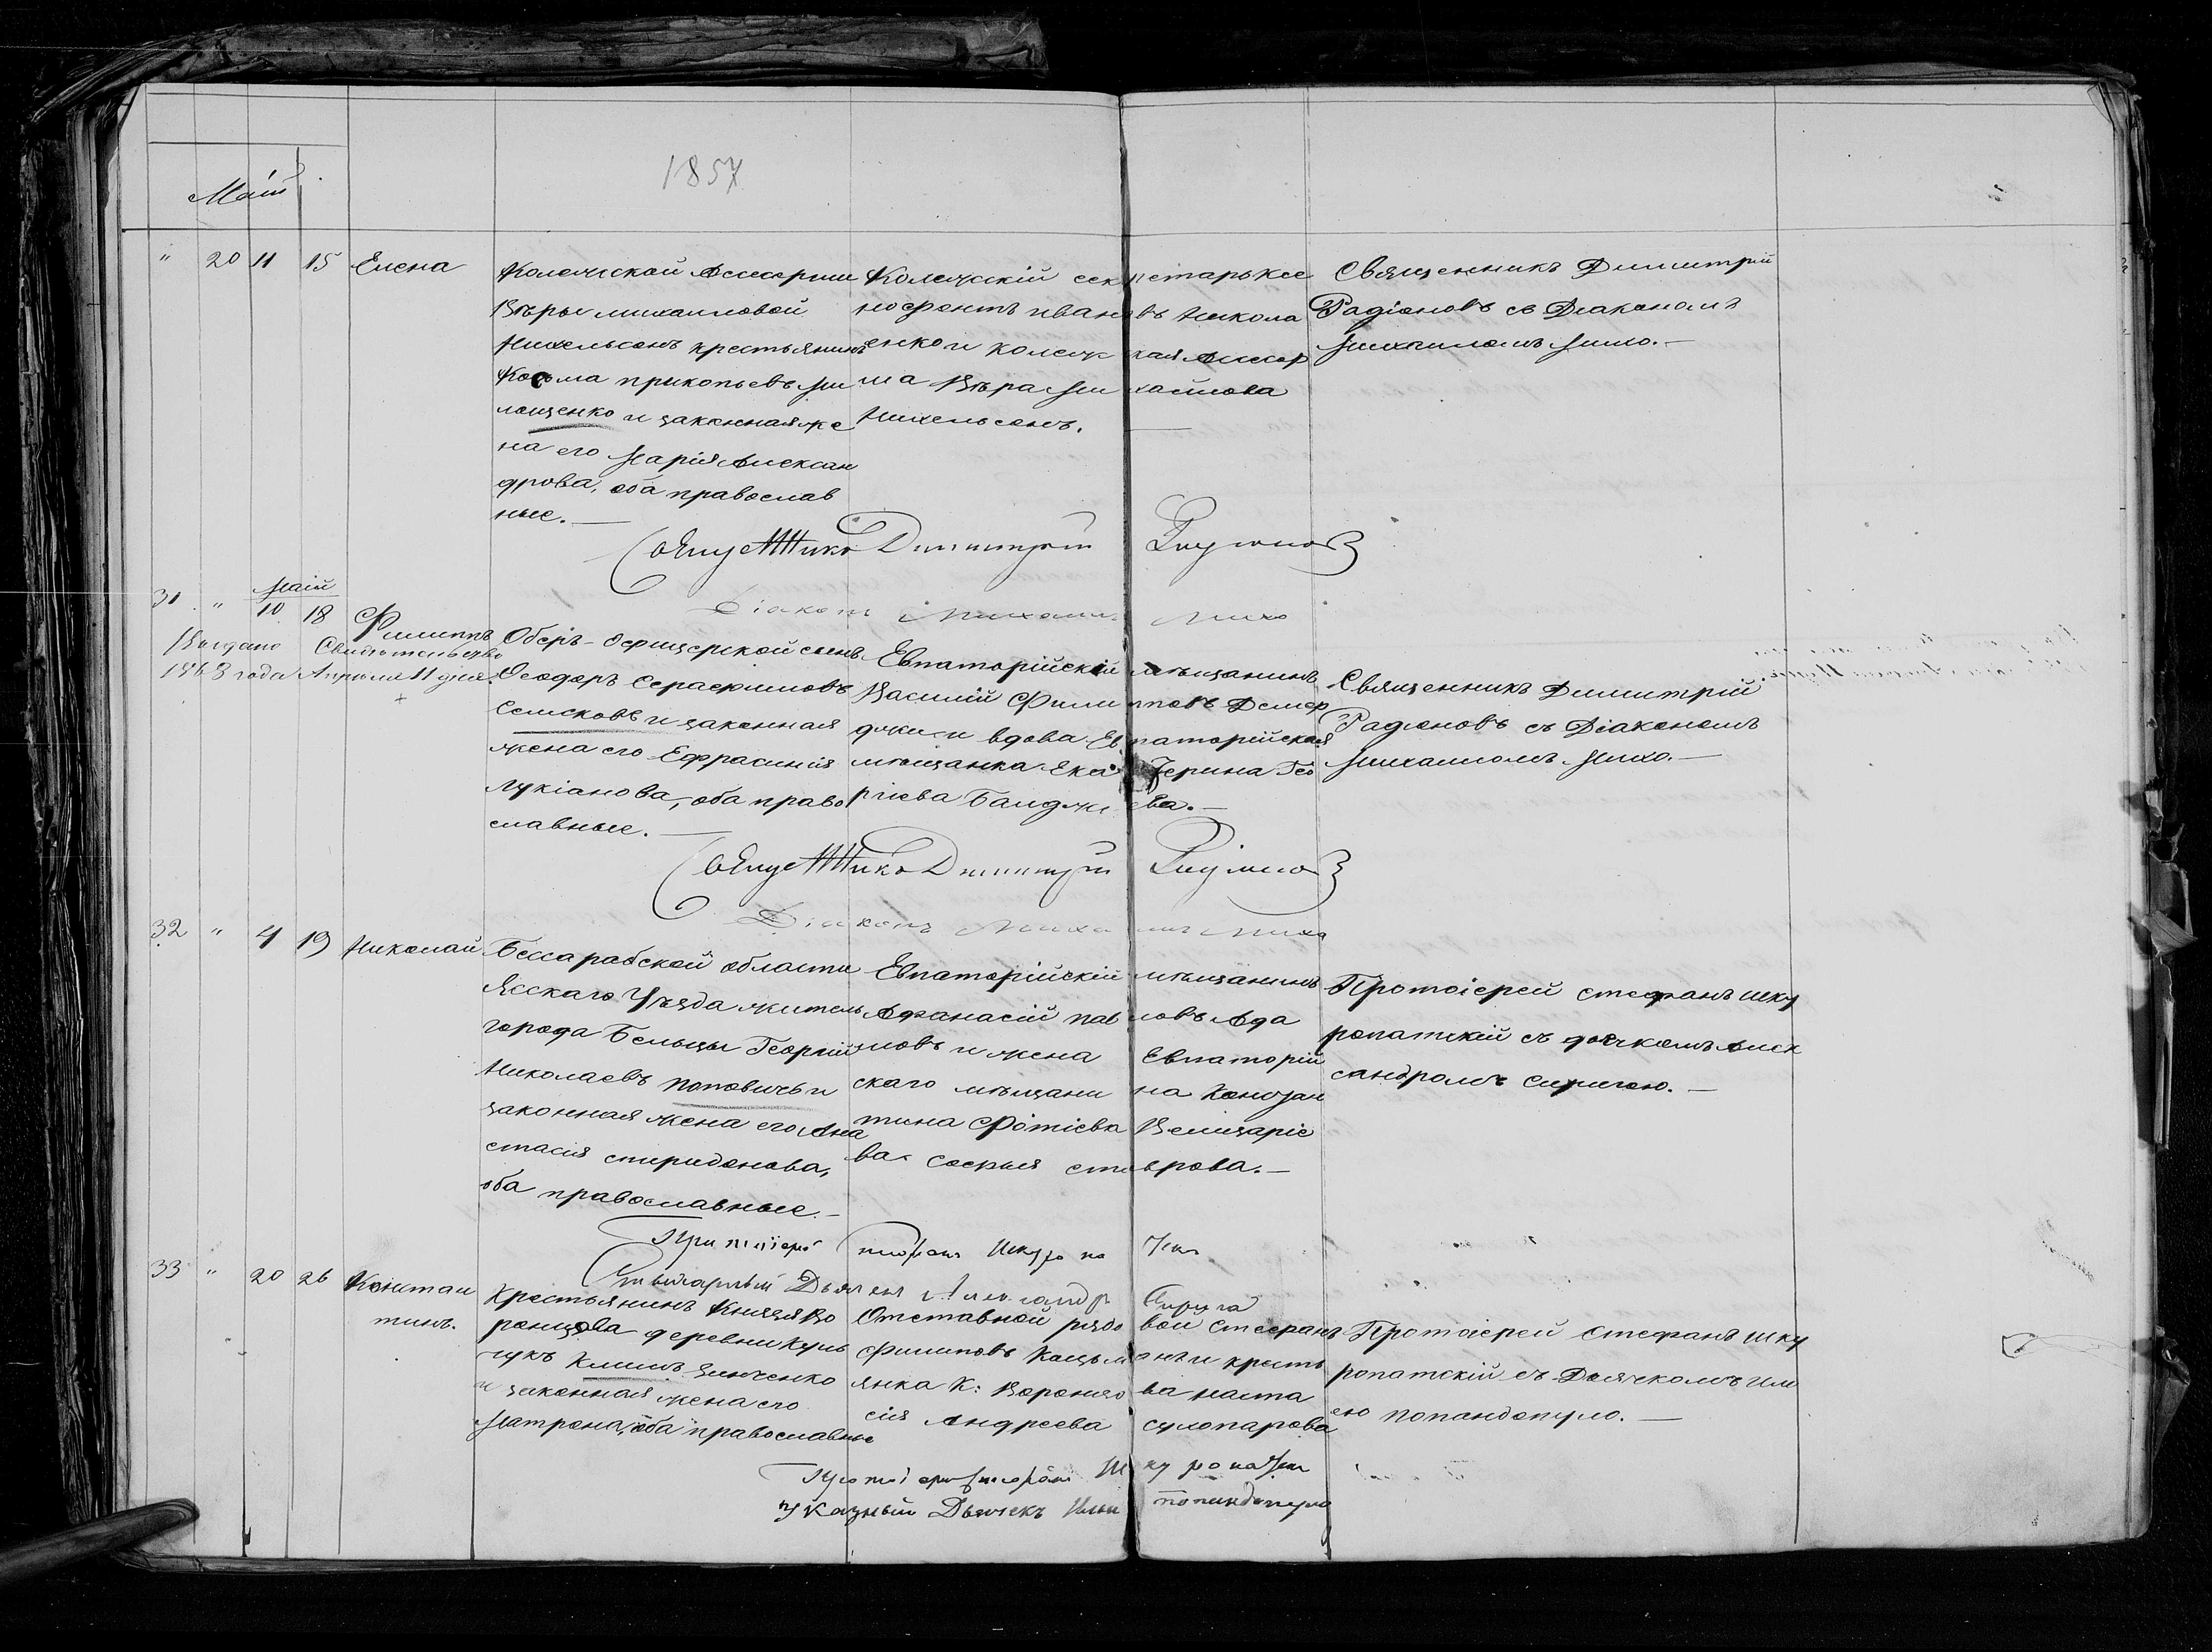 1857
Маій
" 20 11 15 Елена
Колежской Асесорши
Вѣры михаиловой
Нихельсонъ крестьянинъ
Косма прикопьевъ Ми
лощенко и законная же
на его Марія Алексан
дрова, оба православ
ные.—
Колежскій секретарь Ксе
нофонтъ ивановъ Никола
енко и Колежская Асесор
ша Вѣра Михайлова
Нихельсонъ.
Священникъ Димитрій
Радіоновъ съ Діакономъ
Михаиломъ Михо.—
Священникъ Димитрій Радіоновъ
Діаконъ Михаилъ Михо
31 " Маій 10 18 Филиппъ
Выдано Свидѣтельство
1863 года Апрѣля 11 дня.
Оберъ-офицерской сынъ
Феодоръ Серафимовъ
Селисковъ и законная
жена его Ефрасинія
Лукіанова, оба право
славные.—
Евпаторійскій мѣщанинъ
Василій Филиповъ Демер
джи и вдова Евпаторійская
мѣщанка Екатерина Гео
ргіева Банджиева.—
Священникъ Димитрій
Радіоновъ съ Діакономъ
Михаиломъ Михо.—
Священникъ Димитрій Радіоновъ
Діаконъ Михаилъ Михо
32 " 4 19 Николай
Бессарабской области
Ясскаго Уѣзда житель
города Бельцы Георгій
Николаевъ Поповичь и
законная жена его Ана
стасія спиридонова,
оба православные.—
Евпаторійскій мѣщанинъ
Афанасій павловъ Ада
мовъ и жена Евпаторій
скаго мѣщанина Констан
тина Фотіева Велисаріе
ва София ставрова.—
Протоіерей стефанъ шку
ропатскій съ дьячкомъ Алек
сандромъ Сиригою.—
Протоіерей Стефанъ Шкуропатскій
Дьячекъ Александръ Сирига
33 " 20 26 Констан
тинъ.
Крестьянинъ Князя Во
ронцова деревни Куль
чукъ Климъ Зинченко
и законная жена его
Матрона, оба православные
Отставной рядовой стефанъ
Филиповъ и кресть
янка К: Воронцова наста
сія Андреева сухопарова
Протоіерей Стефанъ Шку
ропатскій съ Дьячкомъ Или
ею попандопуло.—
Протоіерей Стефанъ Шкуропатскій
Указный Дьячекъ Илья попандопуло